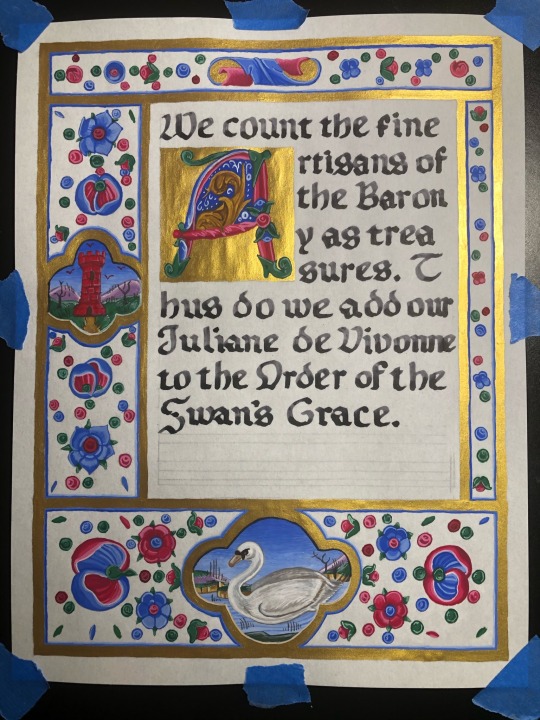 We count the fine
A
rtisans of
the Baron
y as trea
sures. T
hus do we add our
Juliane de Vivonne
to the Order of the
Swan's Grace.